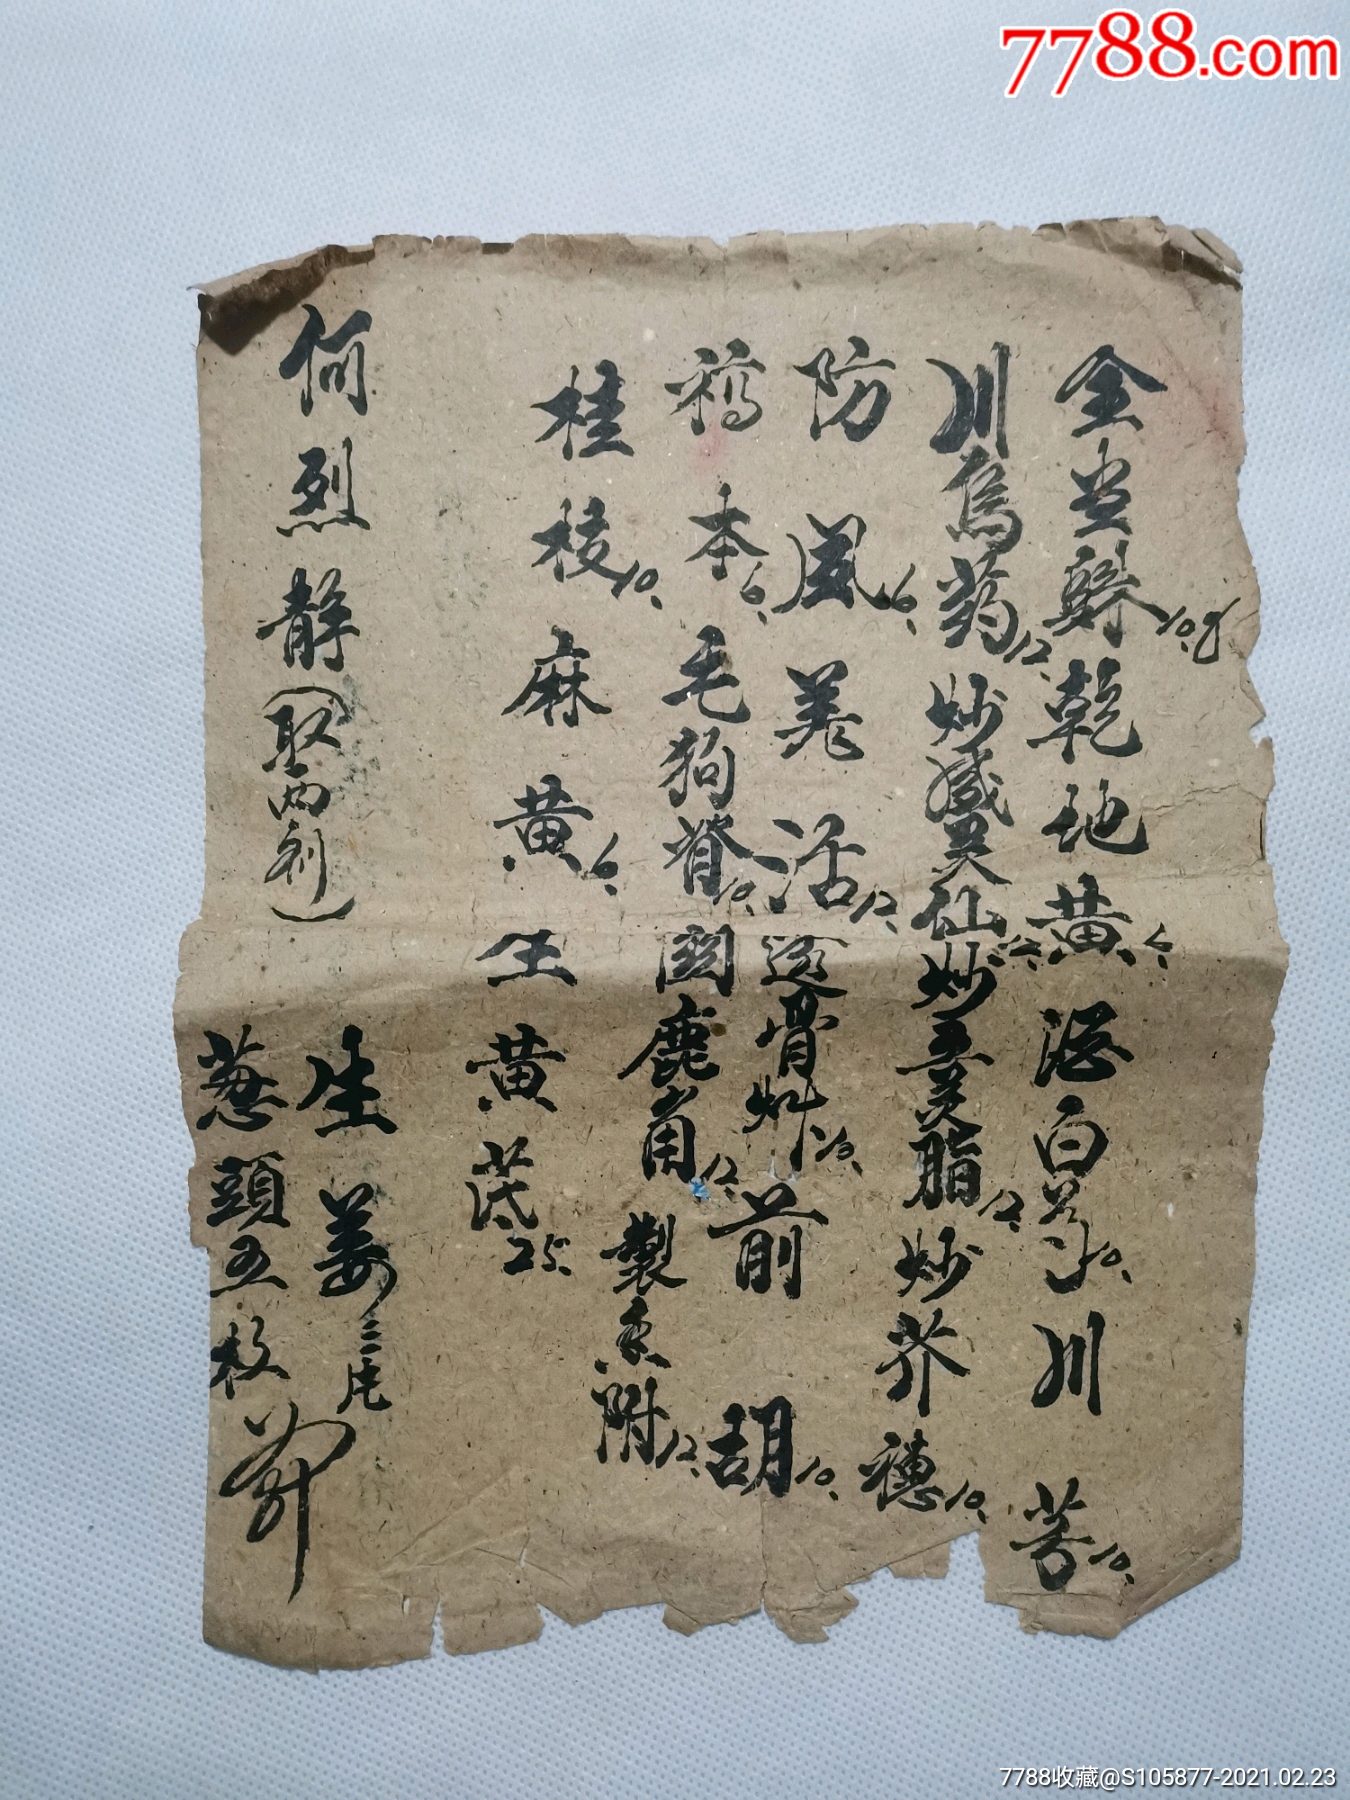 7788.com
全当归10.g 乾地黄6. 酒白芍10. 川芎10.
川乌药12. 炒威灵仙12. 炒五灵脂12. 炒芥穗10.
防风6. 羌活12. 透骨草10. 前胡10.
藁本6. 毛狗脊10. 鹿角12. 製香附12.
桂枝10. 麻黄6. 王黄茋25.
生姜三片
葱頭五枚
何烈静(取两剂)
7788收藏@S105877-2021.02.23